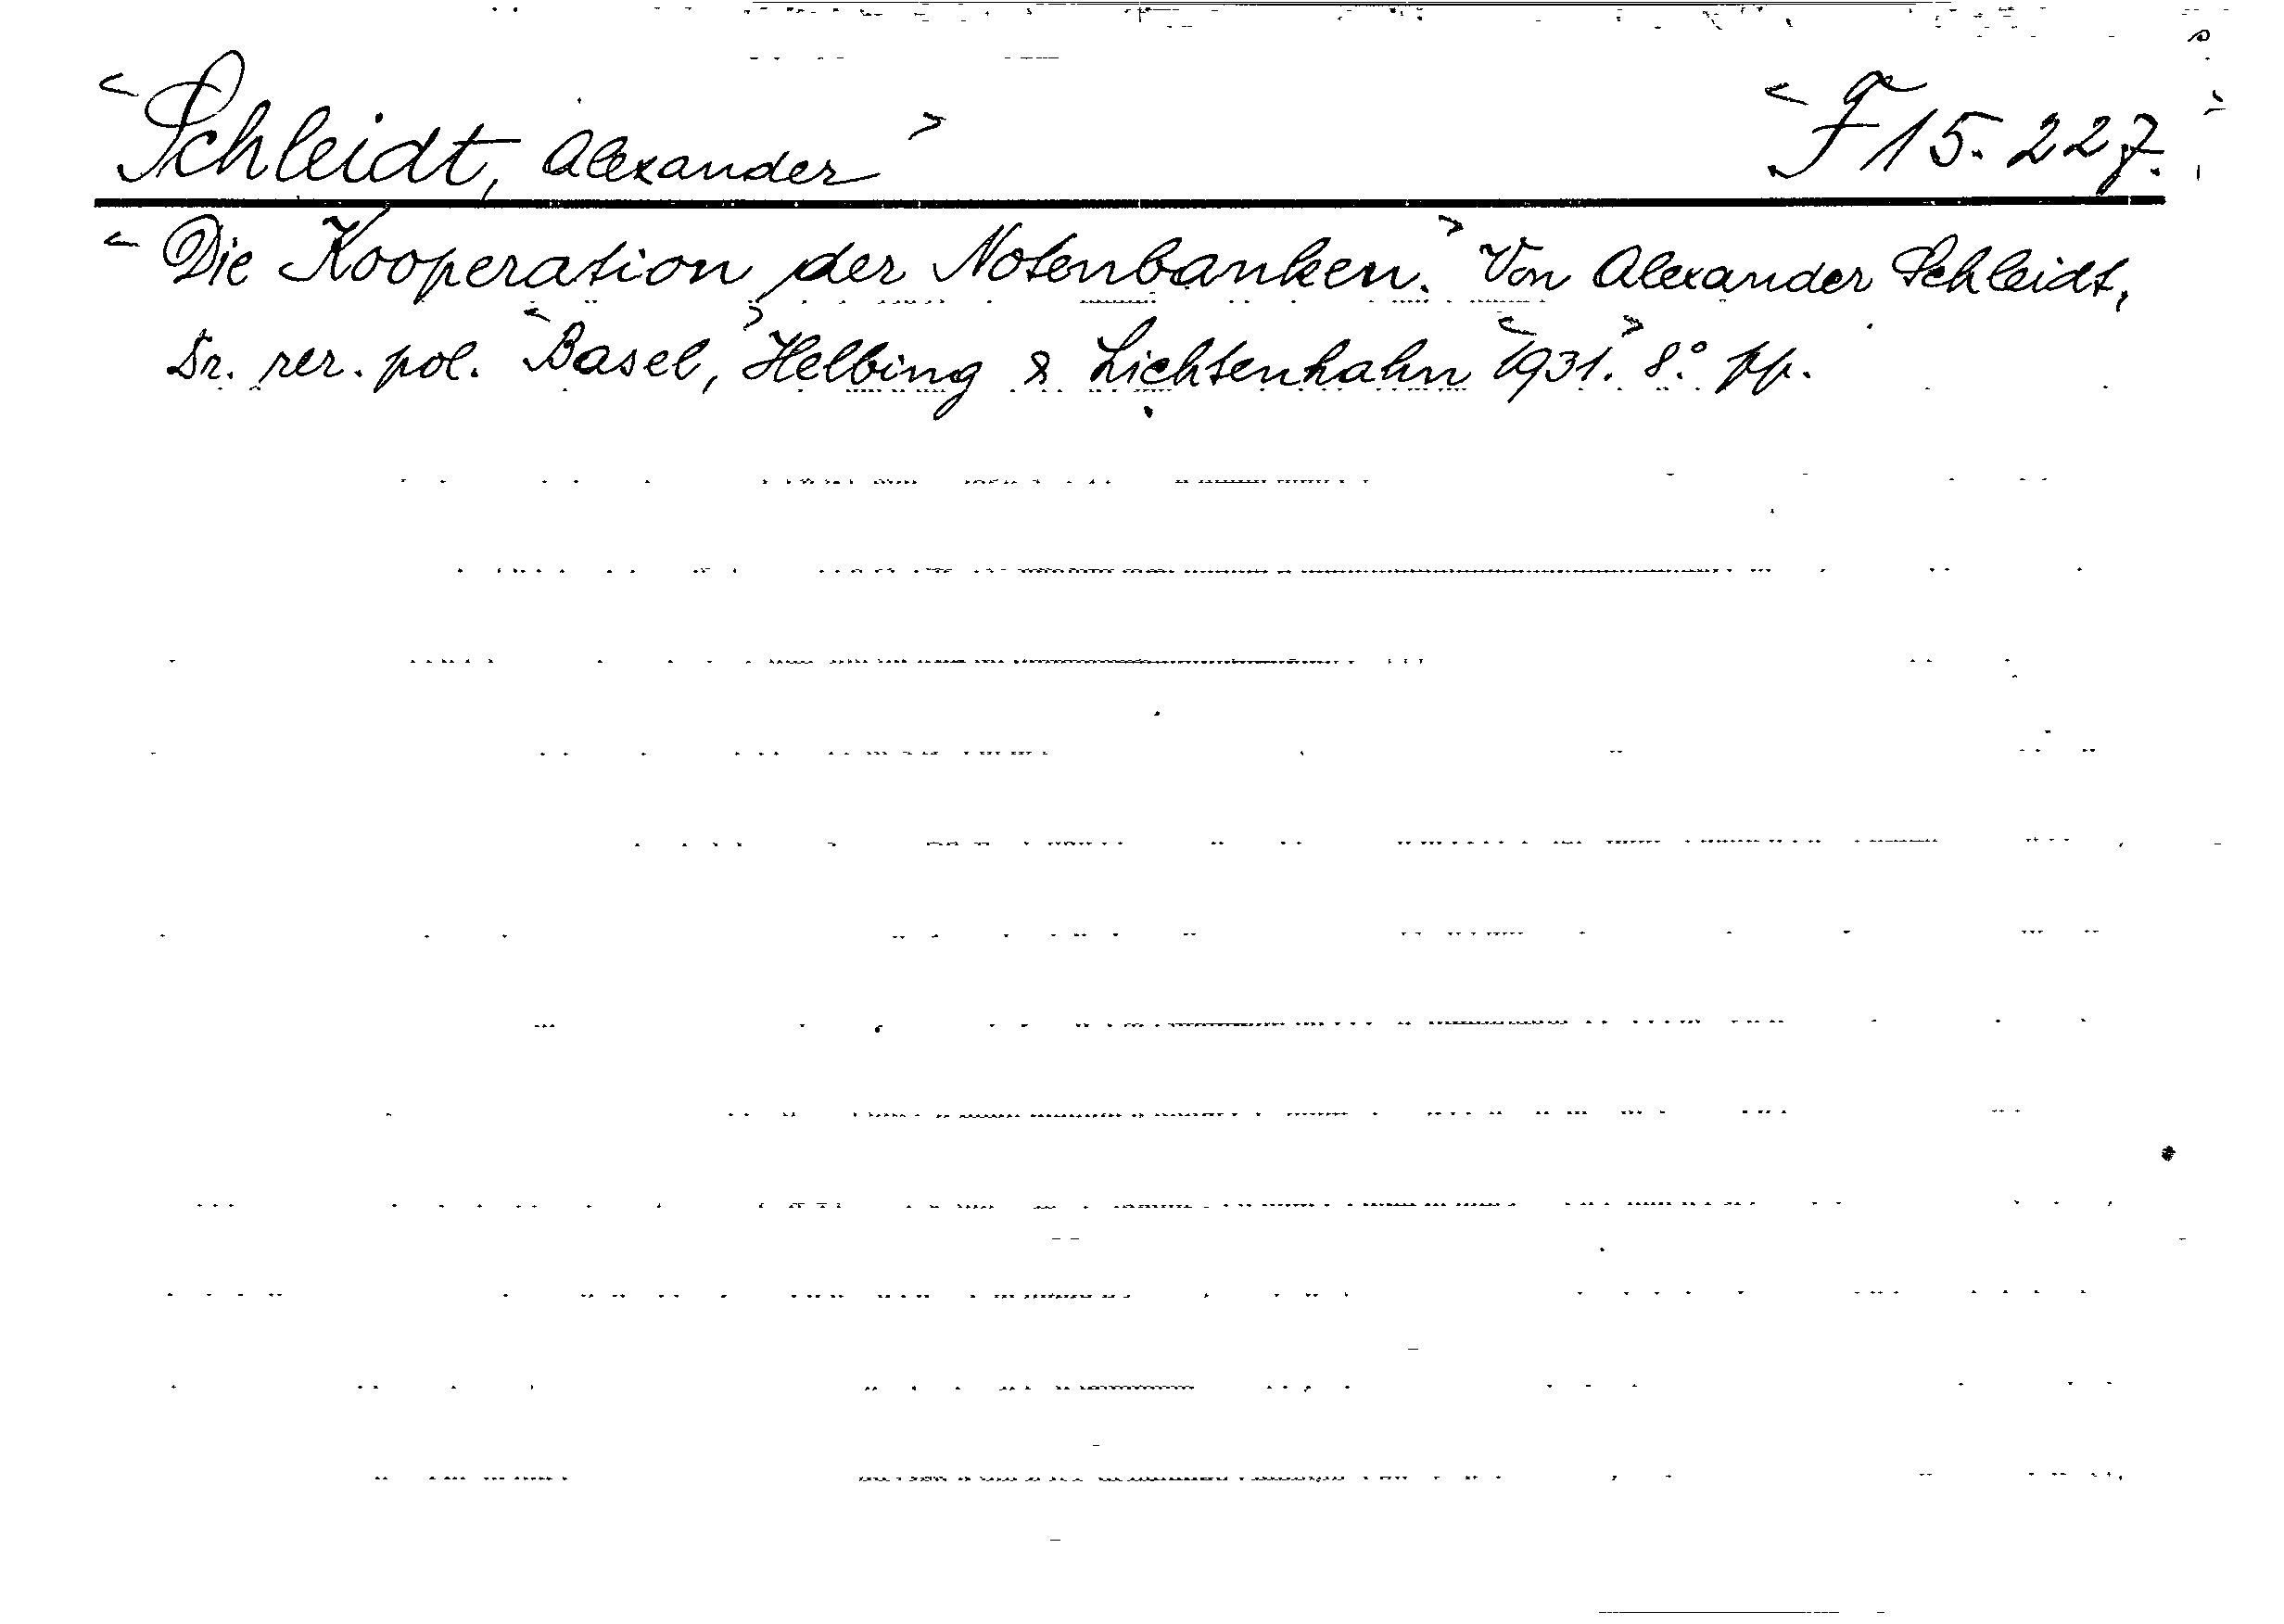 < Schleidt, Alexander > < F 15.227. >
< Die Kooperation der Notenbanken. > Von Alexander Schleidt,
Dr. rer. pol. < Basel, > Helbing & Lichtenhahn < 1931. > 8.° pp.